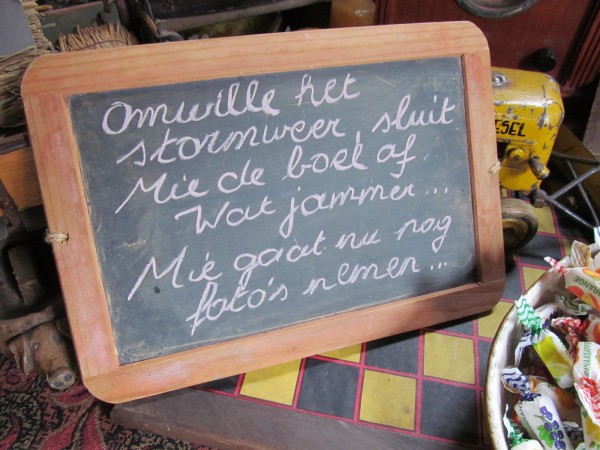 Omwille het
stormweer, sluit
Mie de boel af.
Wat jammer...
Mie gaat nu nog
foto's nemen...
ESEL